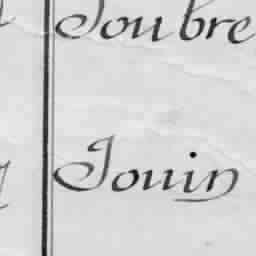 Joubre
Jouin